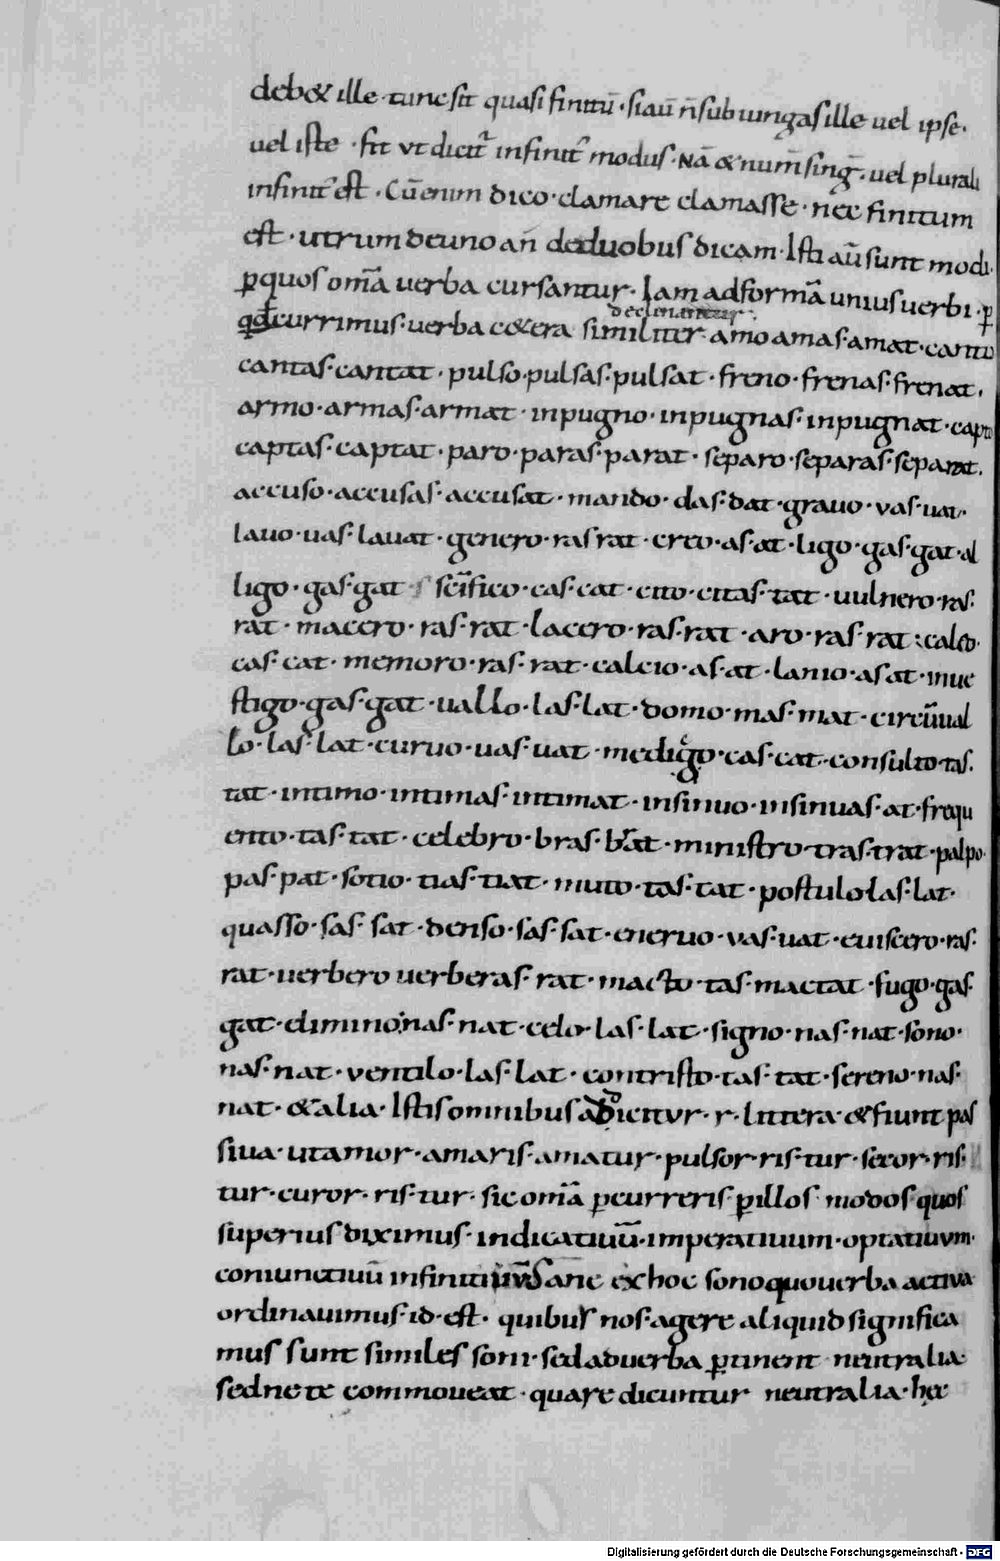 deb& ille · tunc sit quasi finitū · si aū n̄ subiungas ille uel ipse ·
uel iste · fit vt dicit̄ infinit̄ modus · Nā & num̄ sing̅ · uel plurali
infinit̄ est · Cū enim dico · clamare clamasse · nec finitum
est · utrum de uno an̄ de duobus dicam · Isti aū sunt modi ·
p̱ quos om̄a uerba cursantur · Iam ad formā unius uerbi · p̱
declinantur ·
qđ currimus · uerba c&era similiter · amo amas · amat · canto
cantas · cantat · pulso · pulsas · pulsat · freno · frenas · frenat ·
armo · armas · armat · inpugno · inpugnas · inpugnat · capto
captas · captat · paro · paras · parat · separo · separas · separat ·
accuso · accusas · accusat · mando · das · dat · grauo · vas · uat ·
lauo · uas · lauat · genero · ras rat · creo · as · at · ligo · gas · gat · al
ligo · gas · gat · sc̄ifico · cas · cat · cito · citas · tat · uulnero · ras ·
rat · macero · ras · rat · lacero · ras · rat · aro · ras · rat · calco ·
cas · cat · memoro · ras · rat · calcio · as · at · lanio · as at · inue
stigo · gas · gat · uallo · las · lat · domo · mas · mat · circūual
lo · las · lat · curuo · uas · uat · medigo · cas · cat · consulto · tas ·
tat · intimo · intimas · intimat · insinuo · insinuas · at · frequ
ento · tas · tat · celebro · bras · brat · ministro · tras · trat · palpo ·
pas · pat · sotio · tias · tiat · muto · tas · tat · postulo · las · lat ·
quasso · sas · sat · denso · sas · sat · eneruo · vas · uat · euiscero · ras ·
rat · uerbero uerberas · rat · macto · tas · mactat · fugo · gas ·
gat · elimino · nas · nat · celo · las · lat · signo · nas · nat · sono ·
nas · nat · ventilo · las · lat · contristo · tas · tat · sereno · nas ·
nat · & alia · Istis omnibus addicitvr · r · littera · & fiunt pas
siua · ut amor · amaris · amatur · pulsor · ris · tur · secor · ris ·
tur · curor · ris · tur · sic om̄a p̱curreris p̱ illos modos quos
superius diximus · indicatiuū · imperatiuum · optatiuvm ·
coniunctiuū infinitiuū Sane ex hoc sono quo uerba actiua
ordinauimus · id · est · quibus nos · agere aliquid significa
mus sunt similes soni · sed ad uerba p̱tinent neutralia ·
sed ne te commoueat · quare dicuntur neutralia · hec
Digitalisierung gefördert durch die Deutsche Forschungsgemeinschaft - DFG